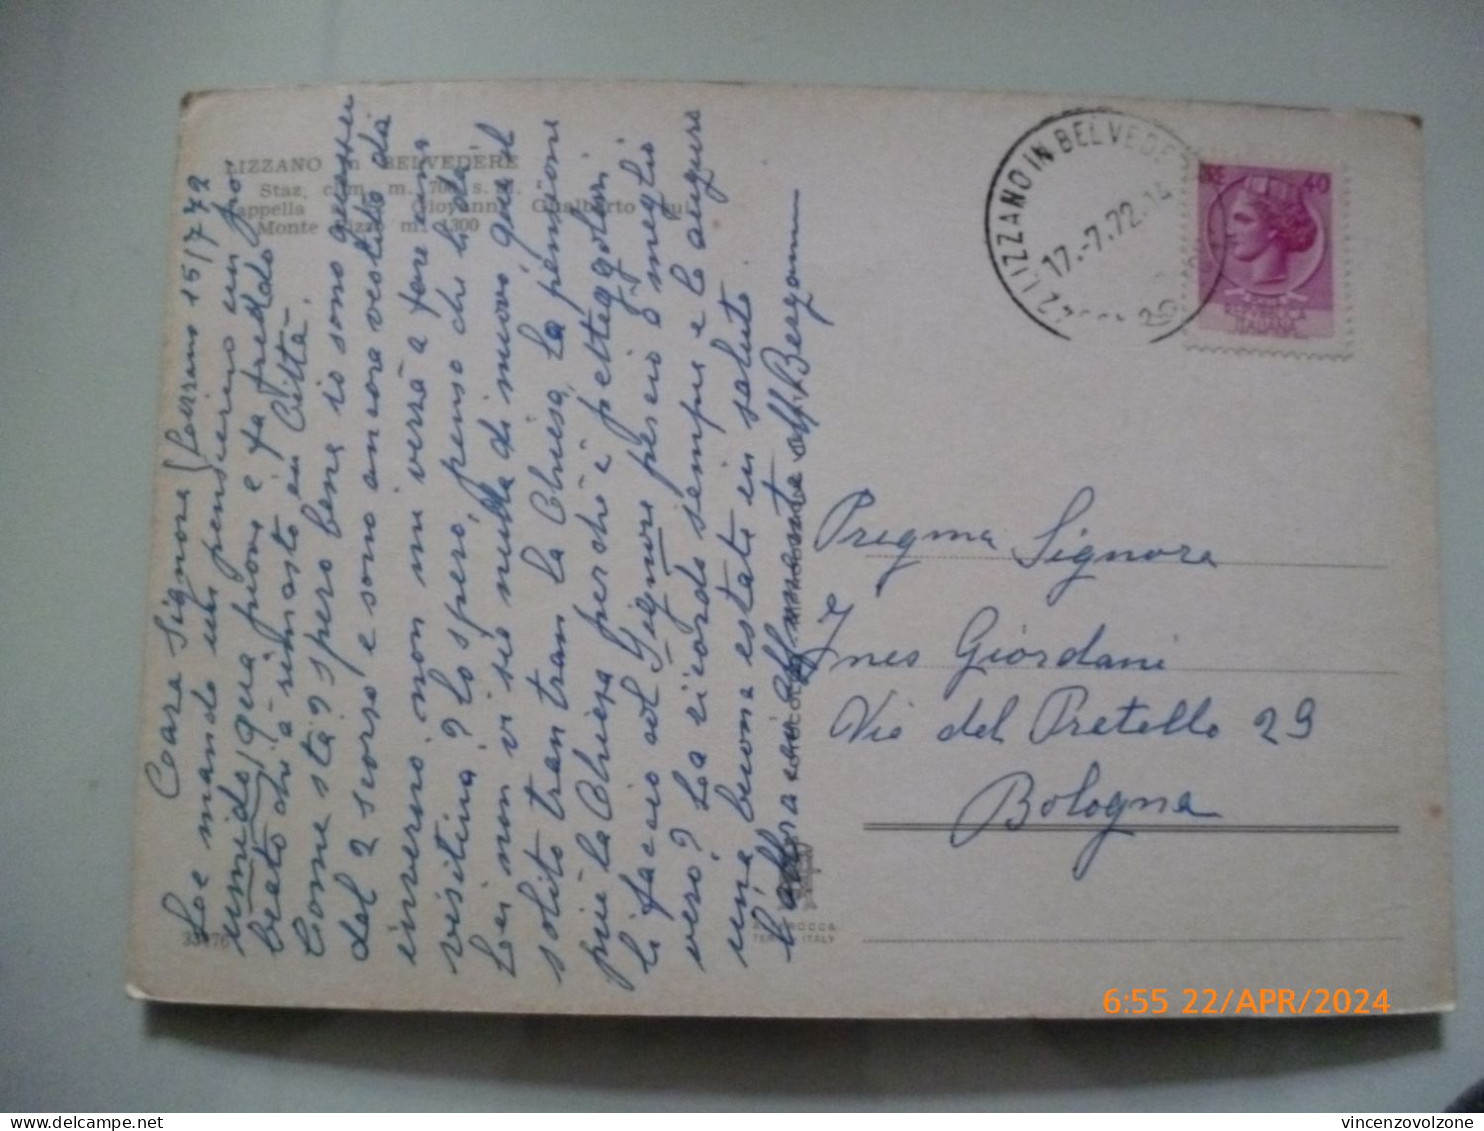 LIZZANO in BELVEDERE
Staz. clim. m. 700 s. m.
Cappella Giovanni Gualberto sul
Monte Pizzo m. 1300
Cara Signora Lizzano 15/7 72
Le mando un pensierino un pò
umido, qua piove e fa freddo
beato chi è rimasto in Città.
Come sta? spero bene io sono quasi
del 2 scorso e sono ancora vestito da
inverno, non mi verrà a fare una
visitina? lo spero, penso che lì da
Lei non vi sia nulla di nuovo qua il
solito tran tran la Chiesa, la pensione
più la Chiesa perchè i pettegoleri
li faccio col Signore perciò è meglio
vero? La ricordo sempre e le auguro
una buona estate in salute
l'abbraccio
aff. Bergam
33476
ROCCA
TER ITALY
LIZZANO IN BELVEDE
17.-7.72.14
40
REPVBBLICA
ITALIANA
Pregma Signora
Ines Giordani
Via del Pratello 29
Bologna
6:55 22/APR/2024
vincenzovolzone